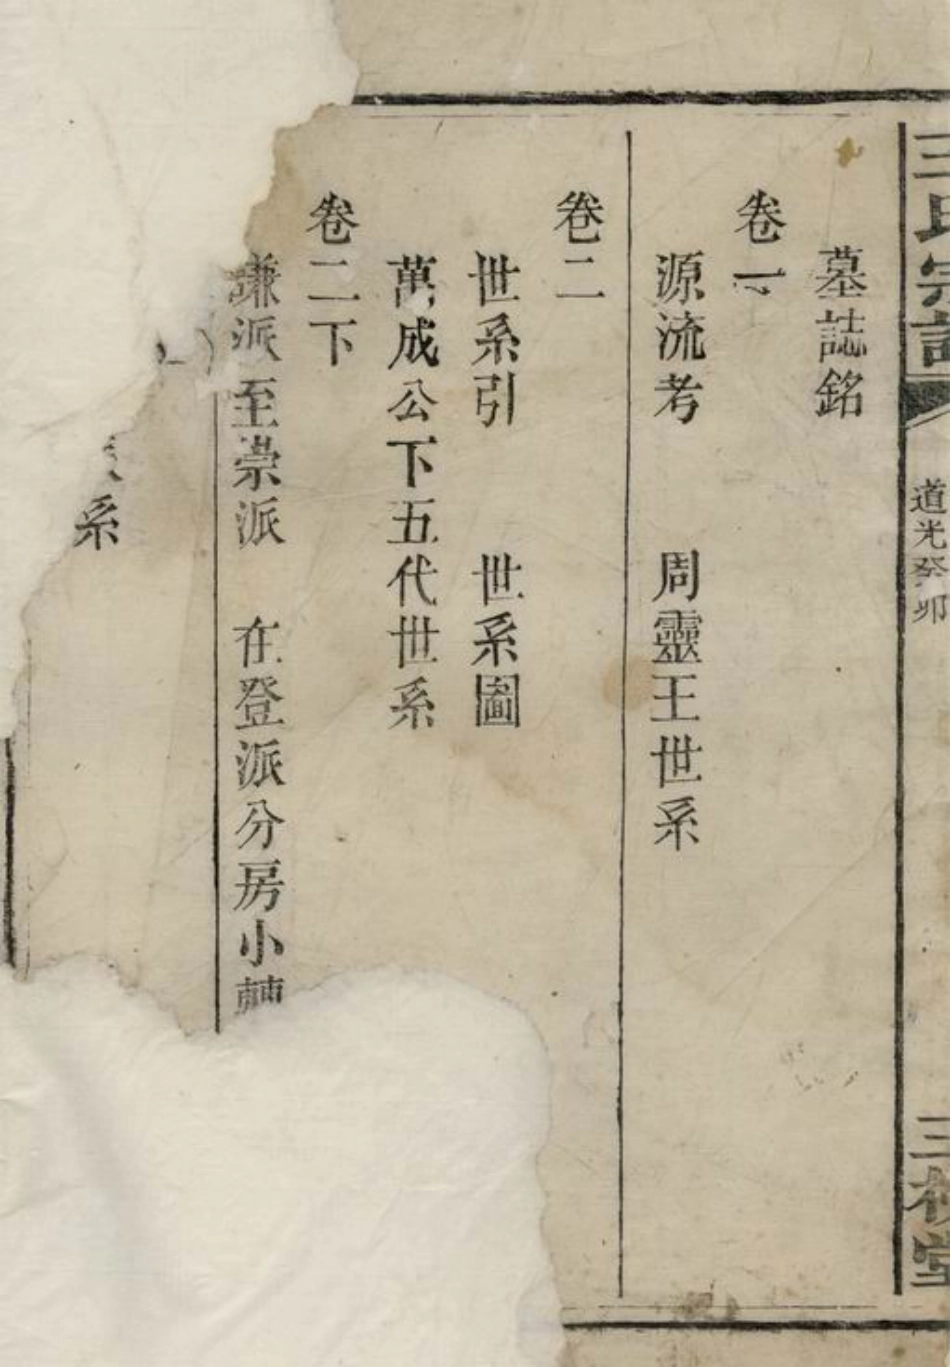 王氏宗譜
道光癸卯
三槐堂
墓誌銘
卷一
源流考 周靈王世系
卷二
世系引 世系圖
萬成公下五代世系
卷二下
謙派至崇派 在登派分房小
系